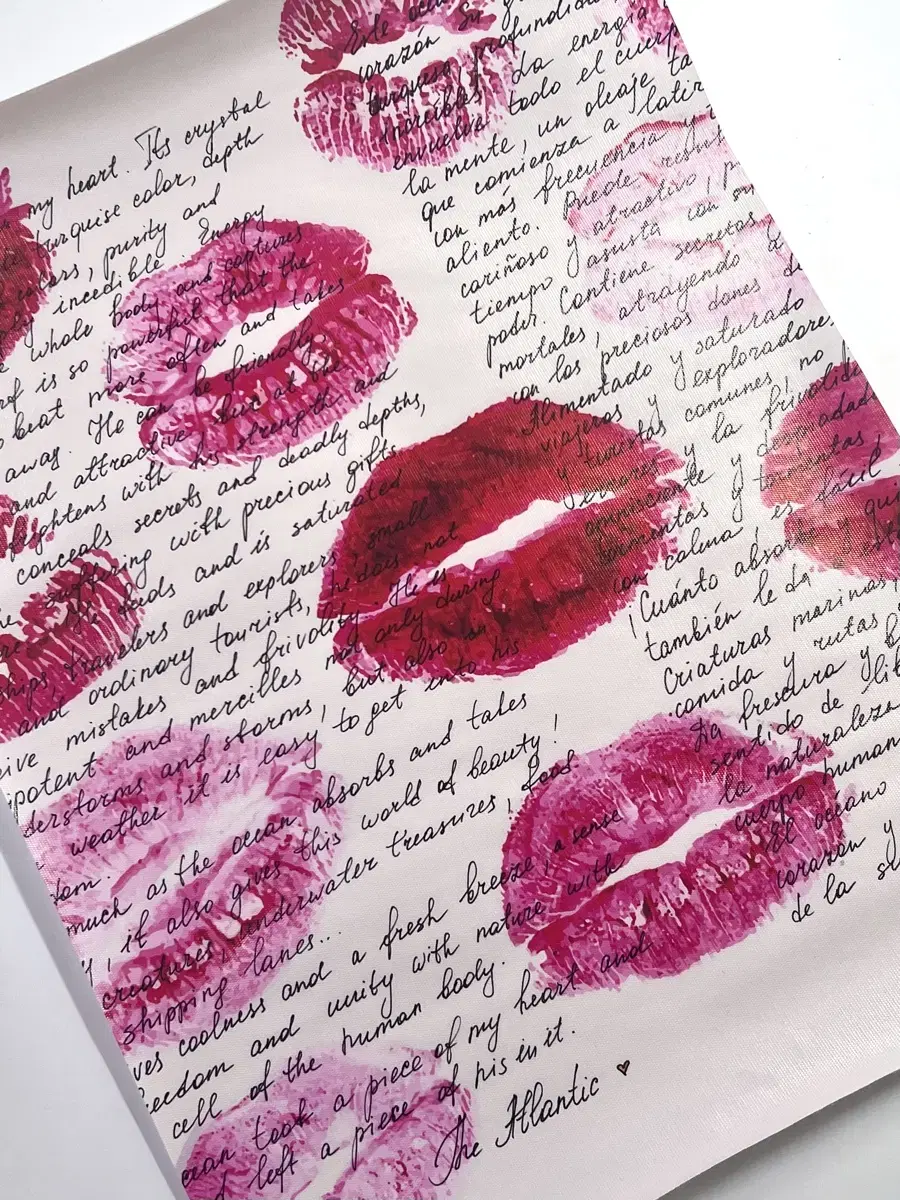 my heart. Its crystal
turquise color, depth
colors, purity and
incedible Energy
whole body and captures
is so powerful that the
beat more often and takes
away. He can be friendly
and attractive but at the
frightens with his strength and
conceals secrets and deadly depths,
suffering with precious gifts
He feeds and is saturated
ships, travelers and explorers, small
and ordinary tourists, he does not
mistakes and frivolity. He is
and mercilles not only during
and storms, but also in
weather it is easy to get into his
much as the ocean absorbs and takes
it also gives this world of beauty!
creatures, underwater treasures, food
shipping lanes...
coolness and a fresh breeze, a sense
and unity with nature with
cell of the human body.
took a piece of my heart and
left a piece of his in it.
The Atlantic ♥
Este
corazón su
turquesa, profundidad
increíbles La energía
envuelve todo el cuerpo
la mente, un oleaje
que comienza a latir
con más frecuencia y
aliento. Puede
cariñoso y atractivo,
tiempo asusta con su
poder. Contiene secretos
mortales, atrayendo a
con los preciosos dones de
Alimentado y saturado
viajeros y exploradores,
y turistas comunes, no
errores y la frivolidad
omnisciente y despiadado
tormentas y tormentas
con calma, es fácil
¡Cuánto absorbe y
también le da
Criaturas marinas,
comida y rutas
La frescura y
sentido de
la naturaleza
cuerpo humano
El océano
corazón y
de la